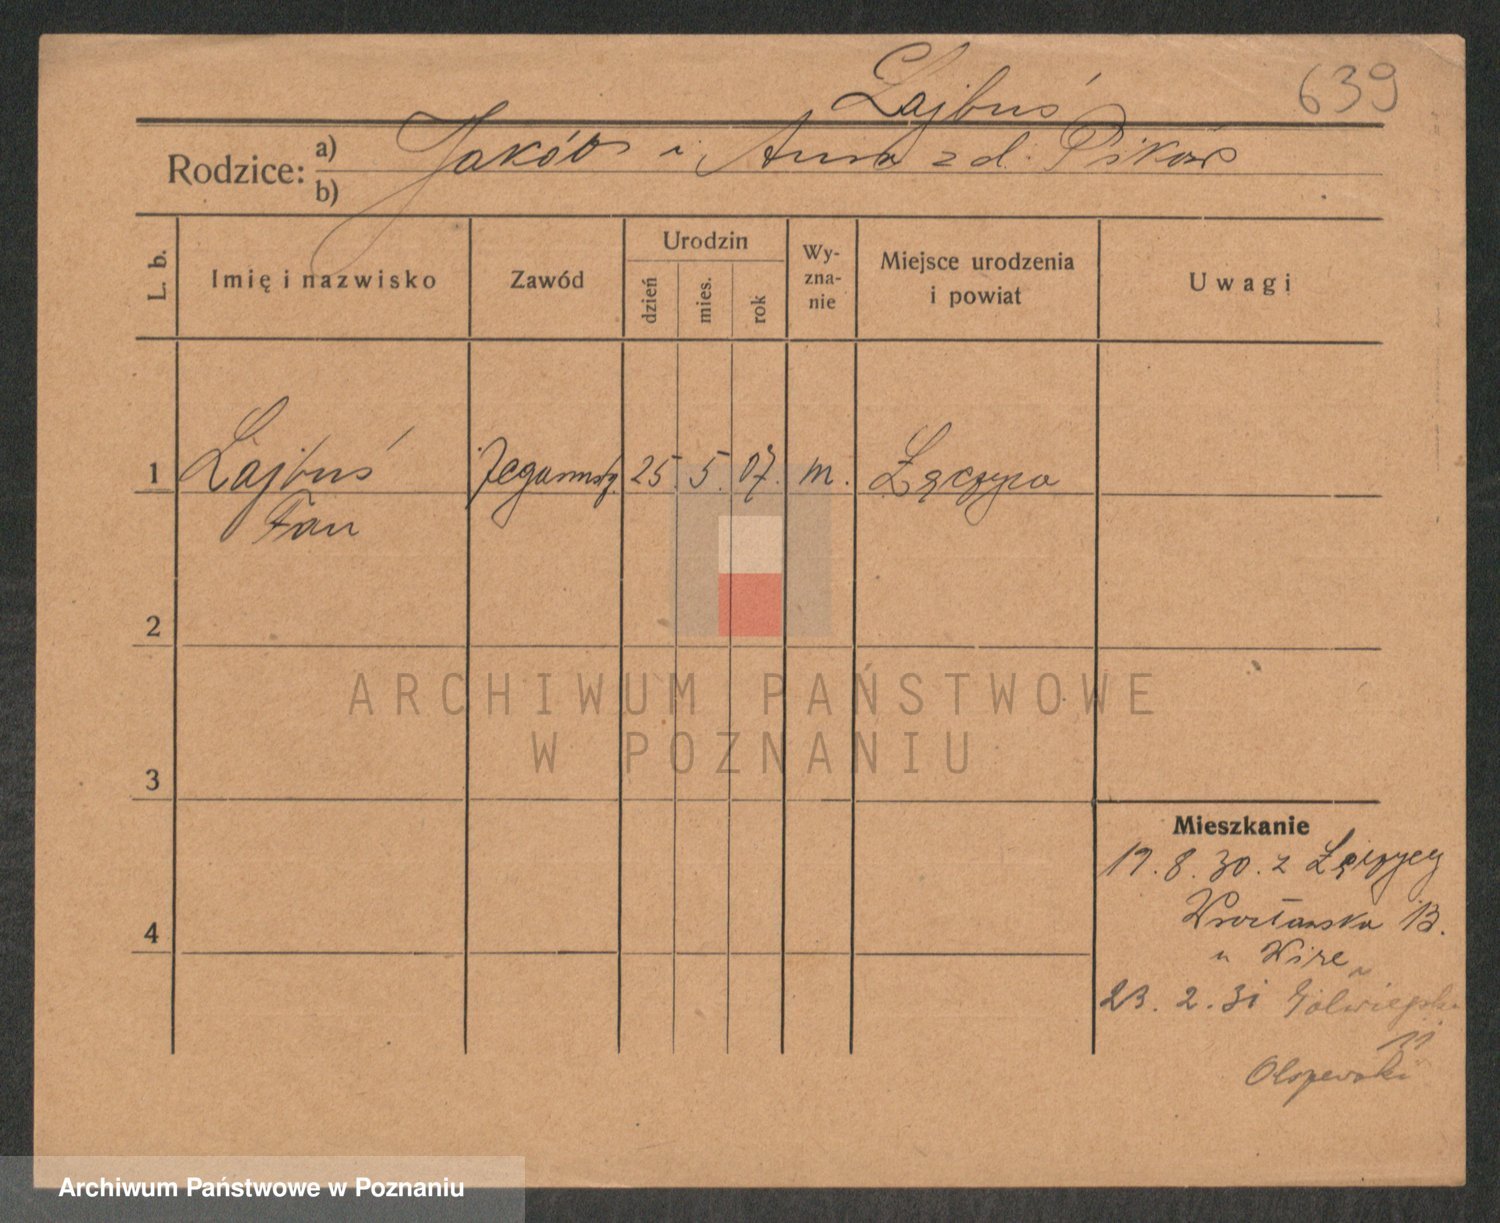 Łajbuś
639
Rodzice:
a) Jakób i Anna z d.
b)
L. b.
Imię i nazwisko
Zawód
Urodzin
dzień
mies.
rok
Wy-
zna-
nie
Miejsce urodzenia
i powiat
Uwagi
1 Łajbuś 25. 5. 07. m. Łęczyca
Jan
2
3
4
Mieszkanie
19.8.30. z Łęczycy
Wrocławska 13.
u
23. 2. 31 Półwiejska
11
Olszewski
ARCHIWUM PAŃSTWOWE
W POZNANIU
Archiwum Państwowe w Poznaniu